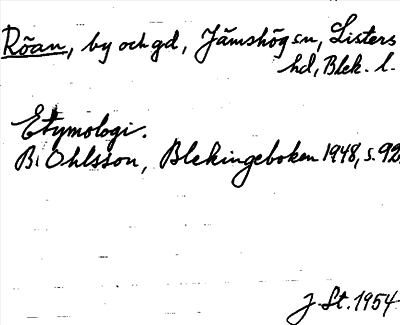 Röan, by och gd, Jämshög sn, Listers
hd, Blek. l.
Etymologi.
B. Ohlsson, Blekingeboken 1948, s. 92.
J. St. 1954.